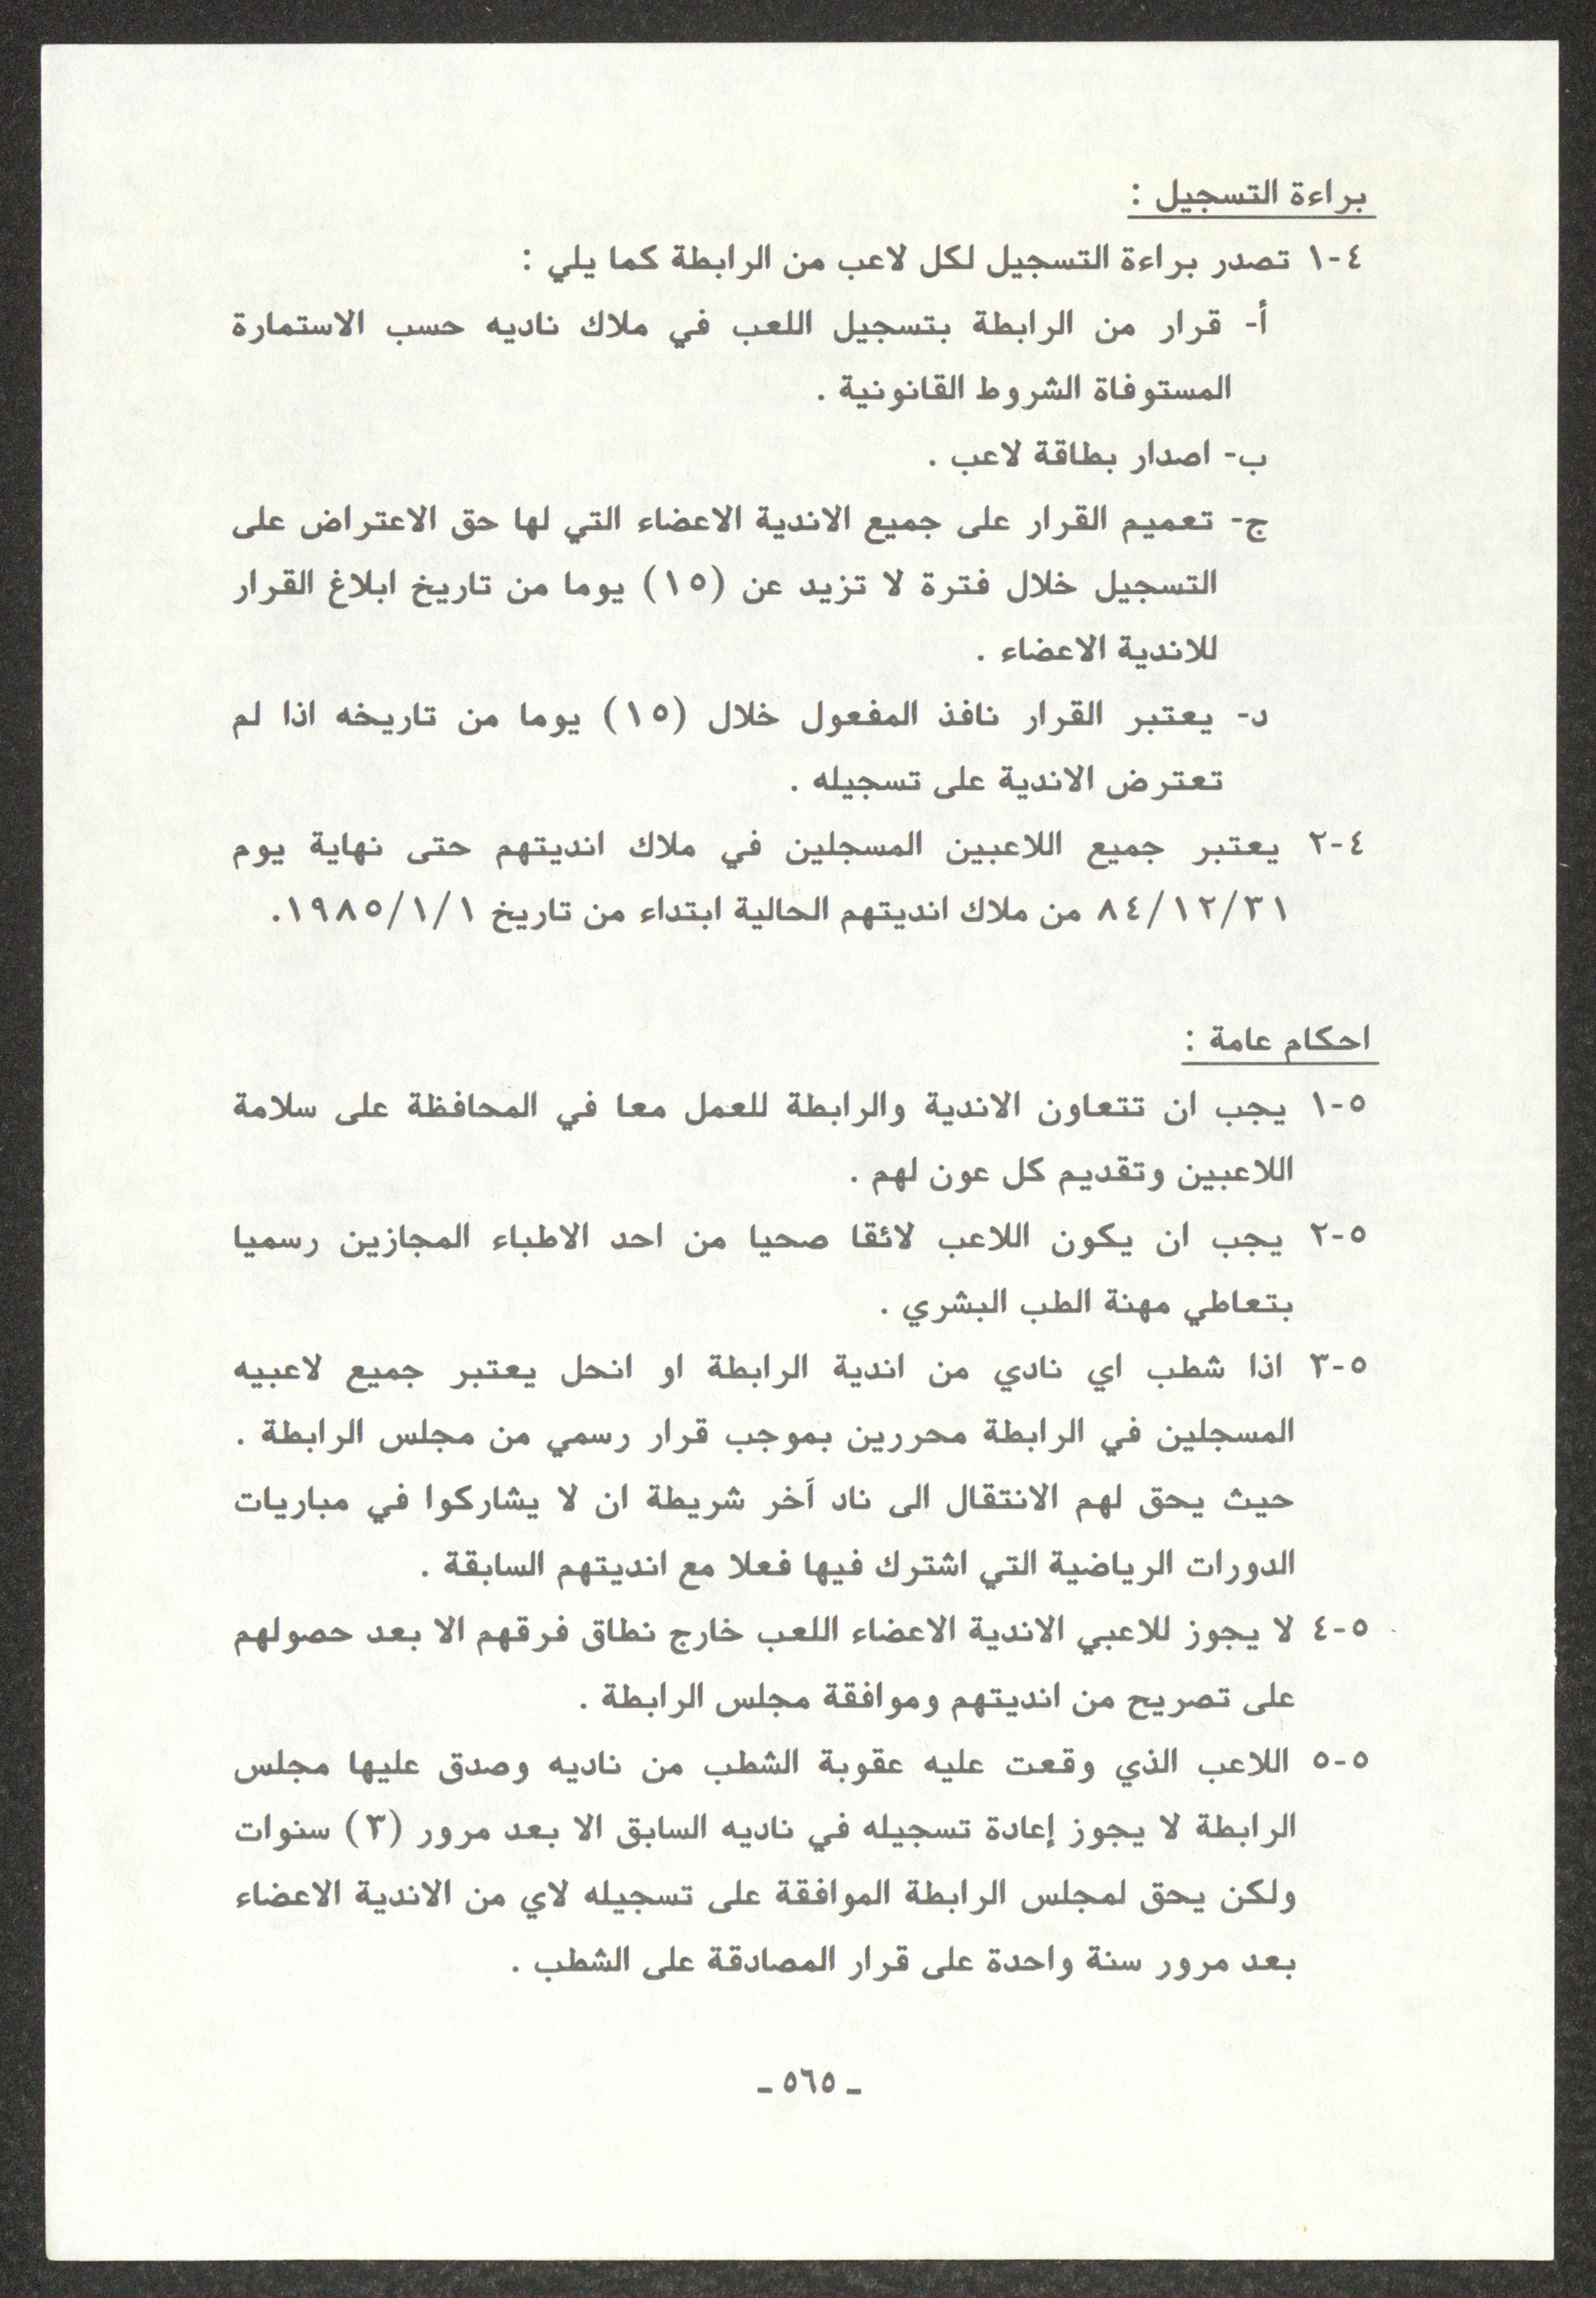 براءة التسجيل :
٤-١ تصدر براءة التسجيل لكل لاعب من الرابطة كما يلي :
أ- قرار من الرابطة بتسجيل اللعب في ملاك ناديه حسب الاستمارة
المستوفاة الشروط القانونية .
ب- اصدار بطاقة لاعب .
ج- تعميم القرار على جميع الاندية الاعضاء التي لها حق الاعتراض على
التسجيل خلال فترة لا تزيد عن (١٥) يوما من تاريخ ابلاغ القرار
للاندية الاعضاء .
د- يعتبر القرار نافذ المفعول خلال (١٥) يوما من تاريخه اذا لم
تعترض الاندية على تسجيله .
٤-٢ يعتبر جميع اللاعبين المسجلين في ملاك انديتهم حتى نهاية يوم
٨٤/١٢/٣١ من ملاك انديتهم الحالية ابتداء من تاريخ ١٩٨٥/١/١.
احكام عامة :
٥-١ يجب ان تتعاون الاندية والرابطة للعمل معا في المحافظة على سلامة
اللاعبين وتقديم كل عون لهم .
٥-٢ يجب ان يكون اللاعب لائقا صحيا من احد الاطباء المجازين رسميا
بتعاطي مهنة الطب البشري .
٥-٣ اذا شطب اي نادي من اندية الرابطة او انحل يعتبر جميع لاعبيه
المسجلين في الرابطة محررين بموجب قرار رسمي من مجلس الرابطة .
حيث يحق لهم الانتقال الى ناد آخر شريطة ان لا يشاركوا في مباريات
الدورات الرياضية التي اشترك فيها فعلا مع انديتهم السابقة .
٥-٤ لا يجوز للاعبي الاندية الاعضاء اللعب خارج نطاق فرقهم الا بعد حصولهم
على تصريح من انديتهم وموافقة مجلس الرابطة .
٥-٥ اللاعب الذي وقعت عليه عقوبة الشطب من ناديه وصدق عليها مجلس
الرابطة لا يجوز إعادة تسجيله في ناديه السابق الا بعد مرور (٣) سنوات
ولكن يحق لمجلس الرابطة الموافقة على تسجيله لاي من الاندية الاعضاء
بعد مرور سنة واحدة على قرار المصادقة على الشطب .
ـ ٥٦٥ ـ